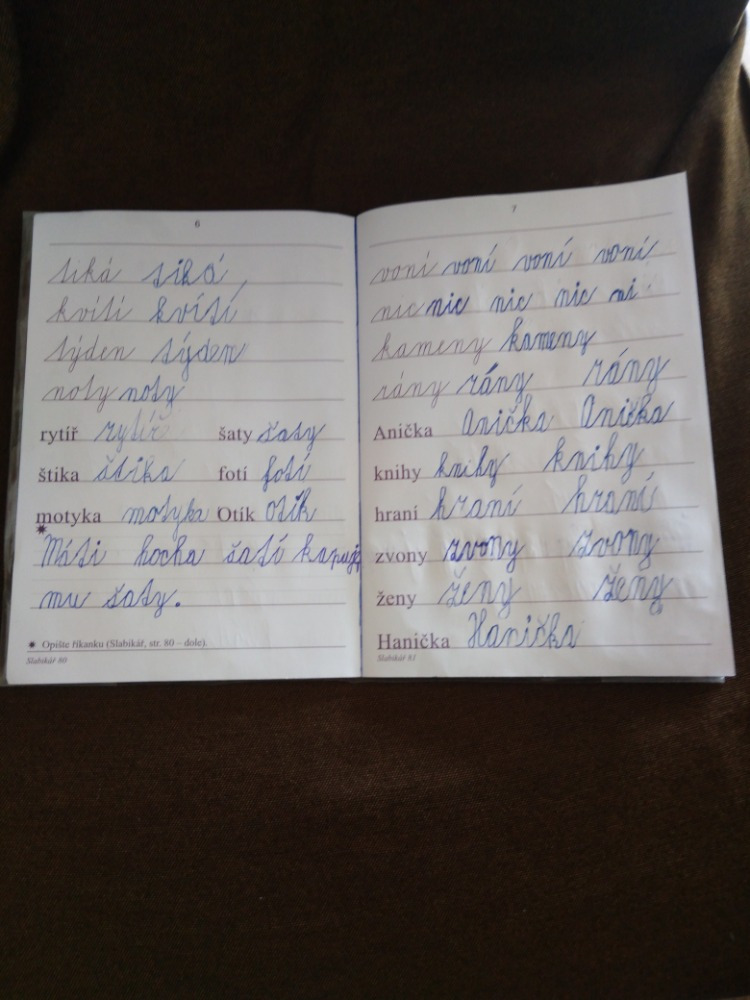 6
tiká tiká
kvítí kvítí
týden týden
noty noty
rytíř rytíř šaty šaty
štika štika fotí fotí
motyka motyka Otík Otík
Máti hocha šatí kapuje
mu šaty.
✷ Opište říkanku (Slabikář, str. 80 – dole).
Slabikář 80
7
voní voní voní voní
nic nic nic nic ni
kameny kameny
rány rány rány
Anička Anička Anička
knihy knihy knihy
hraní hraní hraní
zvony zvony zvony
ženy ženy ženy
Hanička Hanička
Slabikář 81